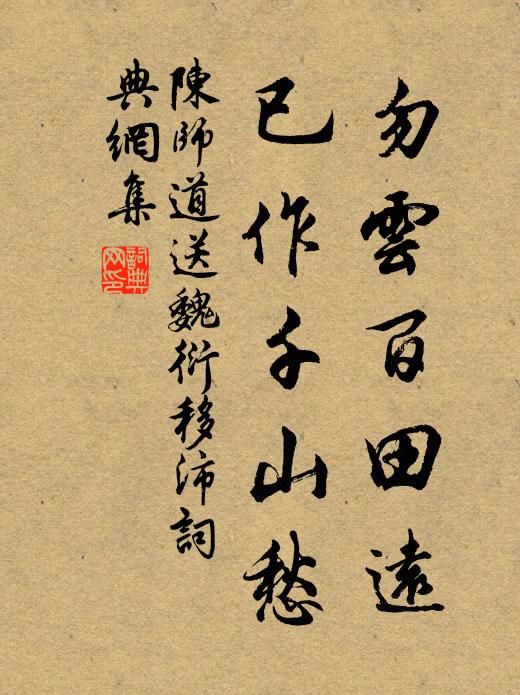 勿雲百田遠
已作千山愁
陳師道送魏衍移沛詞
典網集
詞典網印